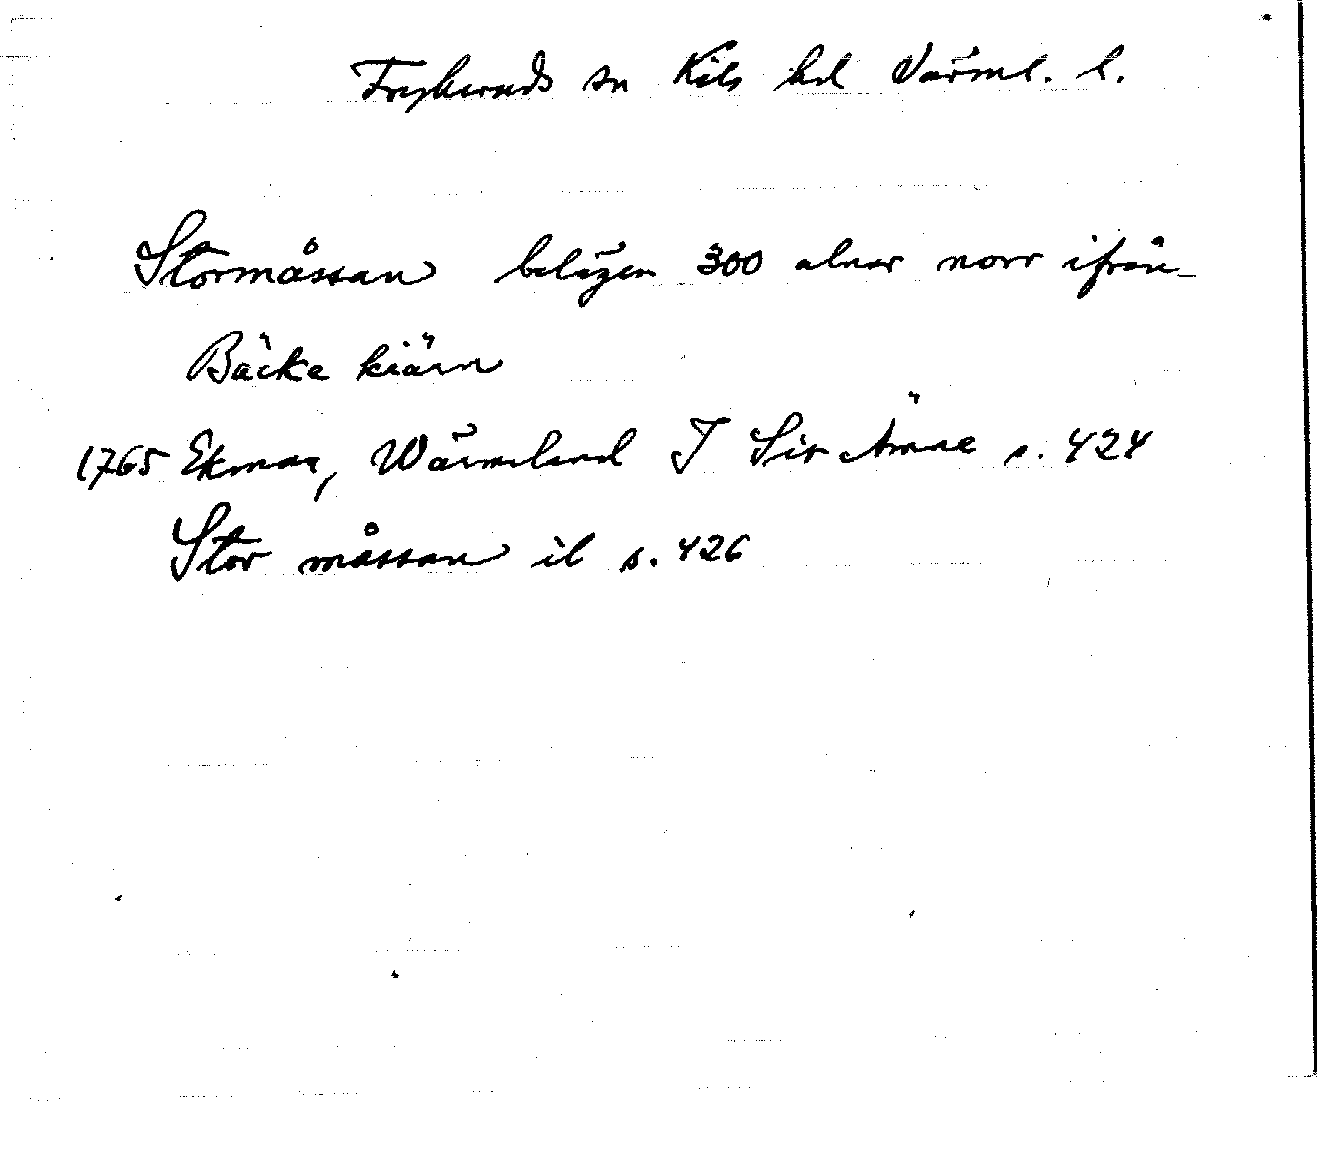 Frykeruds sn Kils hd Värml. l.
Stormåssan belägen 300 alnar norr ifrån
Bäcke kiärn
1765 Ekman, Wärmeland I s. 424
Stor måssan ib s. 426